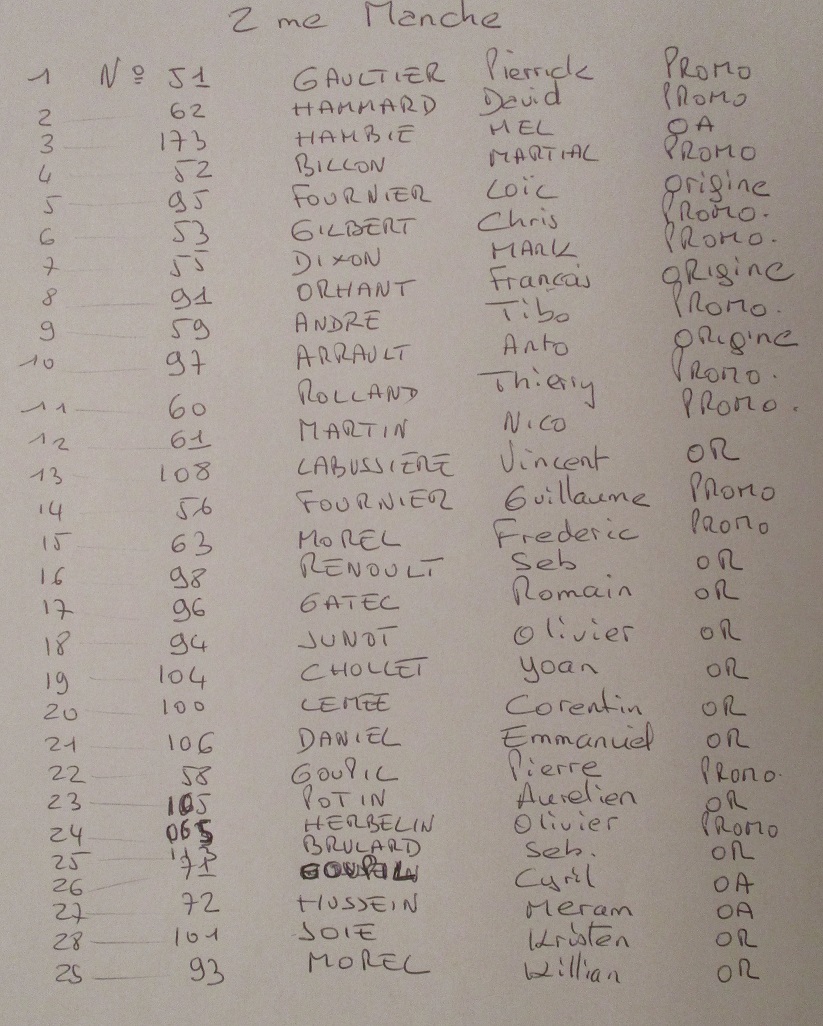 2 me Manche
1 Nº 51 GAULTIER Pierrick PROMO
2 62 HAMMARD David PROMO
3 173 HAMBIE MEL OA
4 52 BILLON MARTIAL PROMO
5 95 FOURNIER Loïc origine
6 53 GILBERT Chris PROMO.
7 55 DIXON MARK PROMO.
8 91 ORHANT Francois ORigine
9 59 ANDRE Tibo PROMO.
10 97 ARRAULT Anto ORigine
11 60 ROLLAND Thierry PROMO.
12 61 MARTIN Nico PROMO.
13 108 LABUSSIERE Vincent OR
14 56 FOURNIER Guillaume PROMO
15 63 MOREL Frederic PROMO
16 98 RENOULT Seb OR
17 96 GATEL Romain OR
18 94 JUNOT Olivier OR
19 104 CHOLLET yoan OR
20 100 LEMEE Corentin OR
21 106 DANIEL Emmanuel OR
22 58 GOUPIL Pierre PROMO.
23 105 POTIN Aurelien OR
24 065 HERBELIN Olivier PROMO
25 BRULARD Seb. OR
26 71 Cyril OA
27 72 HUSSEIN Meram OA
28 101 JOIE Kristen OR
29 93 MOREL Killian OR